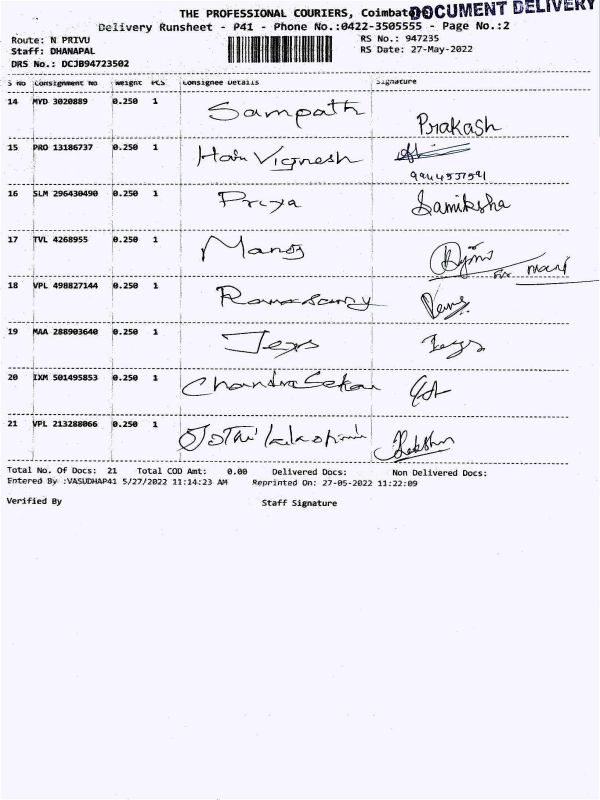 THE PROFESSIONAL COURIERS, Coimbato DOCUMENT DELIVERY
Delivery Runsheet - P41 - Phone No.:0422-3505555 - Page No.:2
Route: N PRIVU RS No.: 947235
Staff: DHANAPAL RS Date: 27-May-2022
DRS No.: DCJB94723502
S No Consignment No Weight PCS Consignee Details Signature
14 MYD 3020889 0.250 1 Sampath Prakash
15 PRO 13186737 0.250 1 Hari Vignesh
16 SLM 296430490 0.250 1 Priya Samiksha
17 TVL 4268955 0.250 1 Manoj
18 VPL 498827144 0.250 1
19 MAA 288903640 0.250 1
20 IXM 501495853 0.250 1 Chandra Sekar
21 VPL 213288066 0.250 1
Total No. Of Docs: 21 Total COD Amt: 0.00 Delivered Docs: Non Delivered Docs:
Entered By :VASUDHAP41 5/27/2022 11:14:23 AM Reprinted On: 27-05-2022 11:22:09
Verified By Staff Signature